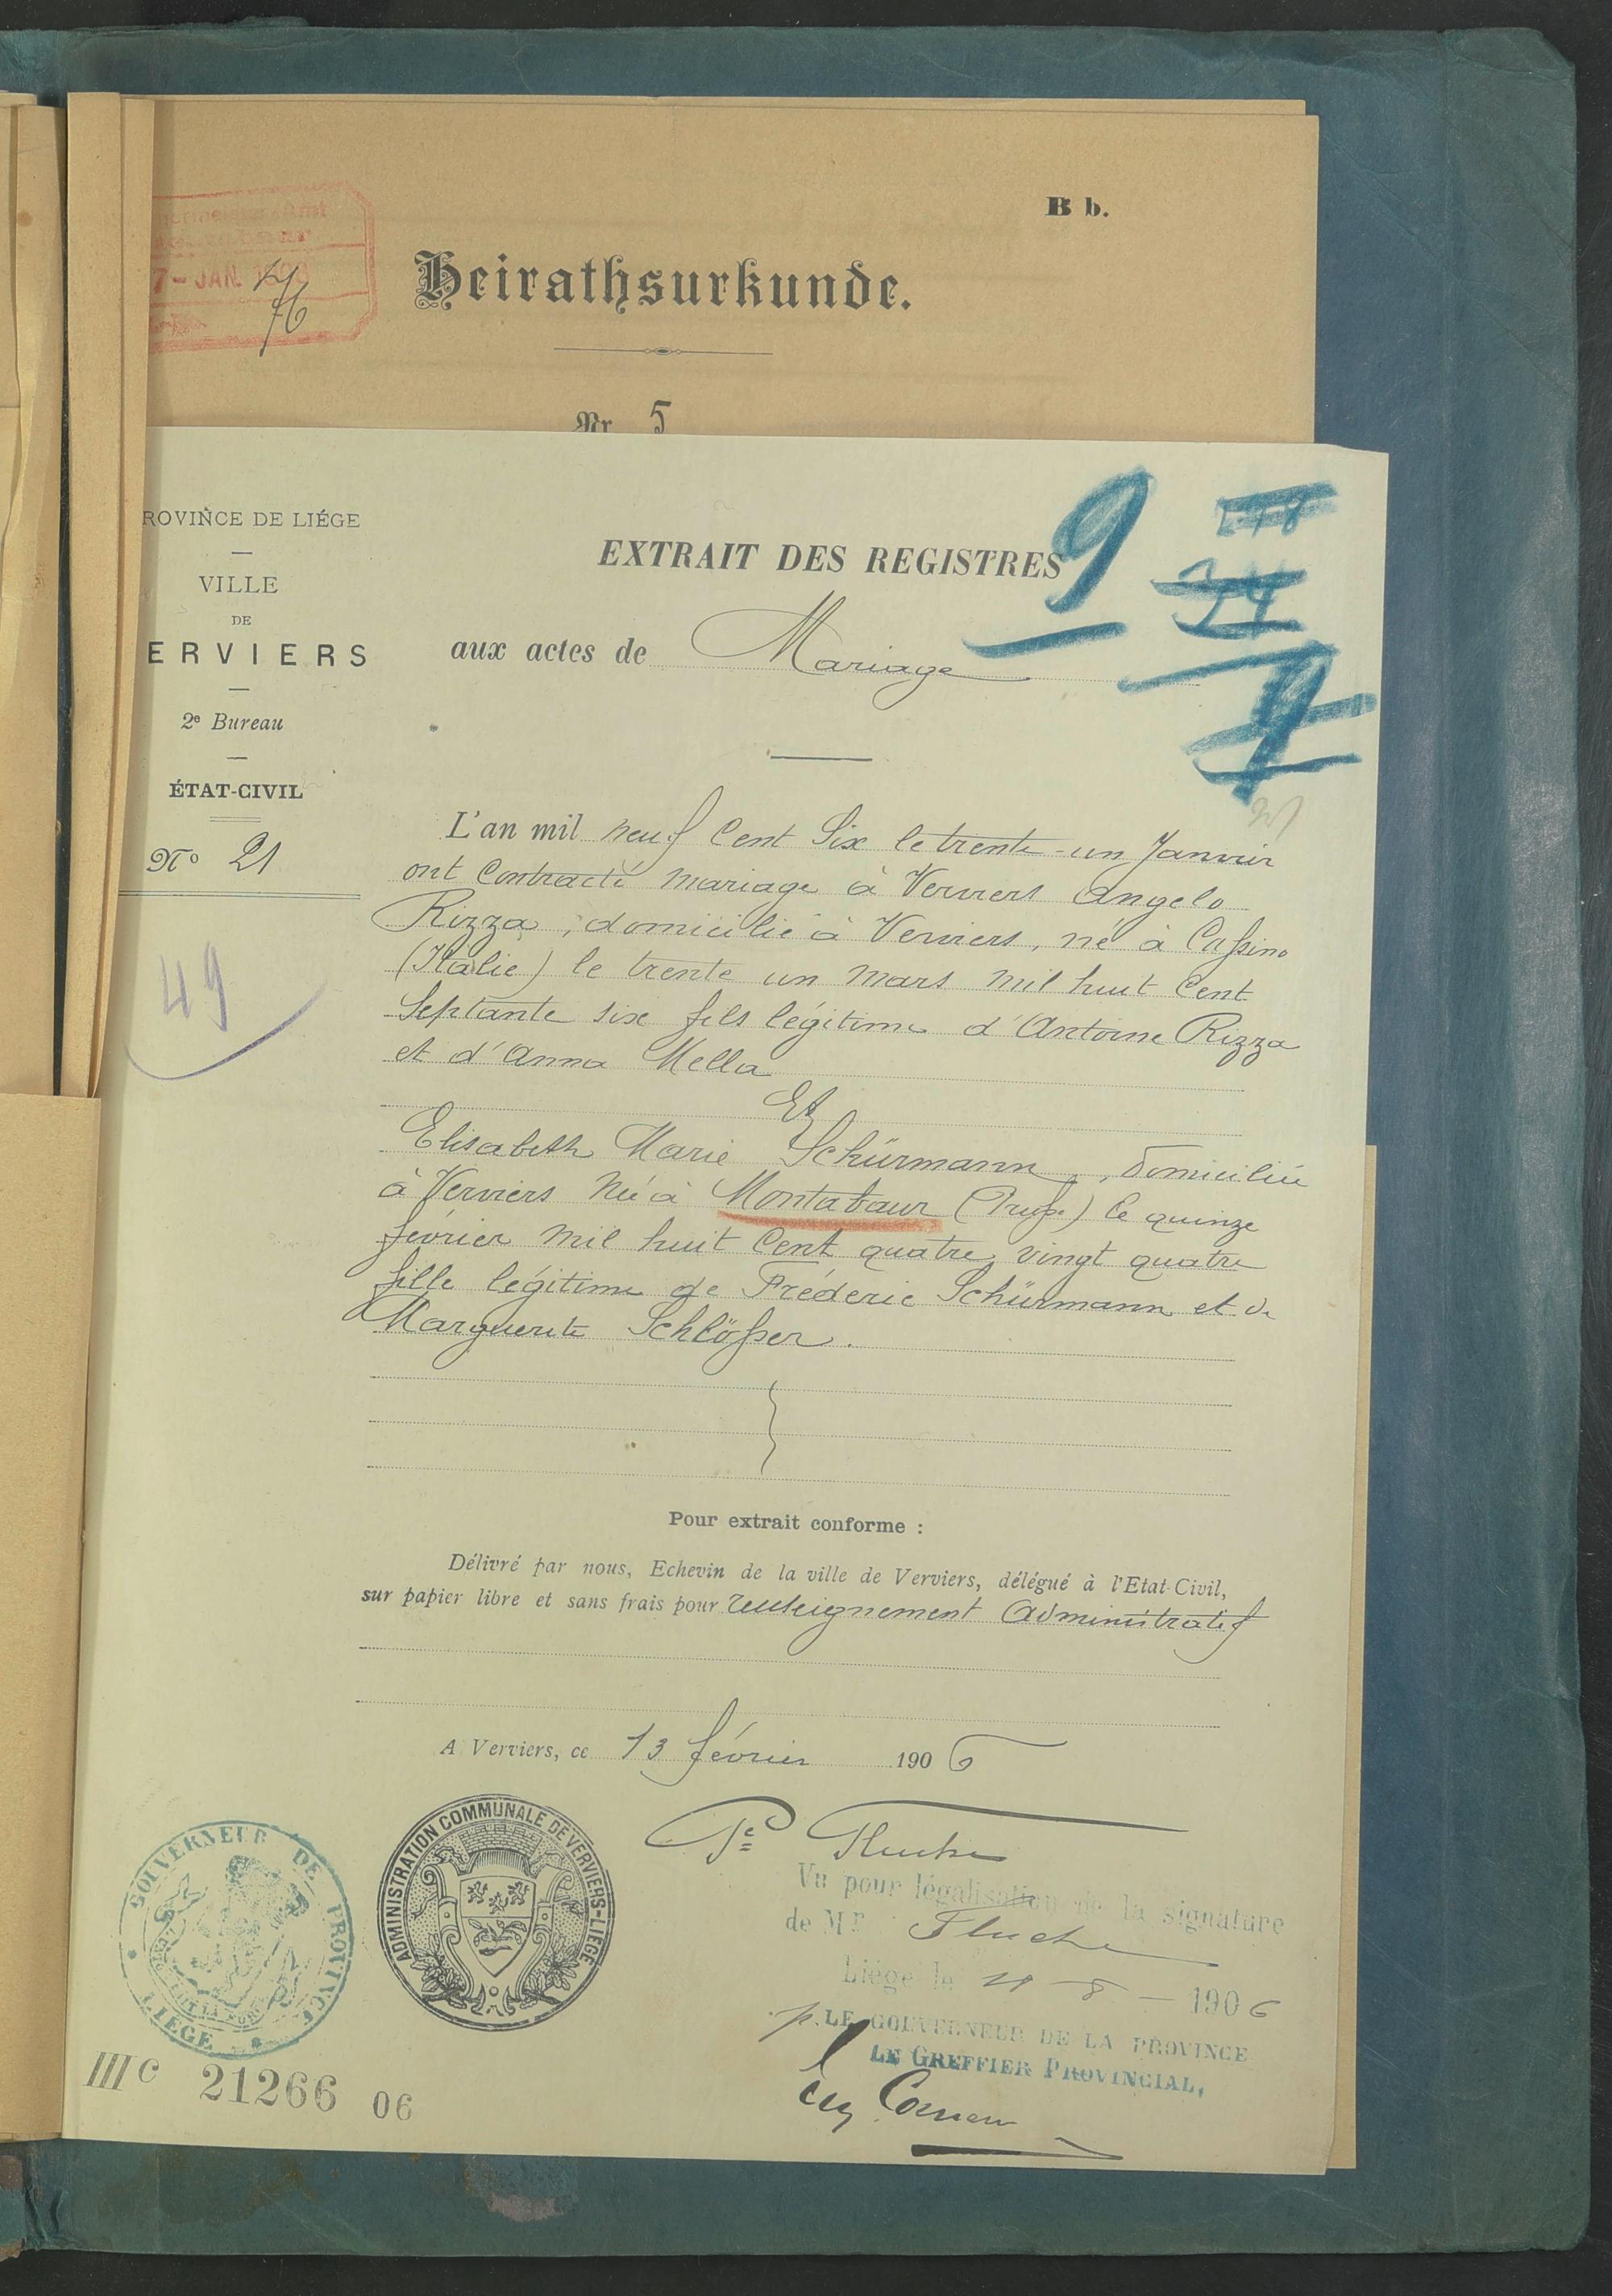 B b.
7 - JAN.
76
Heirathsurkunde.
Nr. 5
ROVINCE DE LIÉGE
VILLE
DE
ERVIERS
2e Bureau
ÉTAT-CIVIL
No 21
49
EXTRAIT DES REGISTRES
9
aux actes de Mariage
L'an mil neuf Cent Six le trente-un Janvier
ont Contracté mariage à Verviers Angelo
Rizza, domicilié à Verviers, né à Cassino
(Italie) le trente un mars mil huit Cent
Septante six fils légitime d'Antoine Rizza
et d'Anna Mella
Et
Elisabeth Marie Schürmann, domiciliée
à Verviers née à Montabaur (Prusse) le quinze
février mil huit Cent quatre vingt quatre
fille légitime de Frédéric Schürmann et de
Marguerite Schlösser.
Pour extrait conforme :
Délivré par nous, Echevin de la ville de Verviers, délégué à l'Etat-Civil,
sur papier libre et sans frais pour renseignement administratif
A Verviers, ce 13 février 1906
GOUVERNEUR DE PROVINCE
LIÉGE
ADMINISTRATION COMMUNALE DE VERVIERS-LIÉGE
Vu pour légalisation de la signature
de Mr
Liége le 8 - 1906
p. LE GOUVERNEUR DE LA PROVINCE
LE GREFFIER PROVINCIAL,
IIIc 21266 06